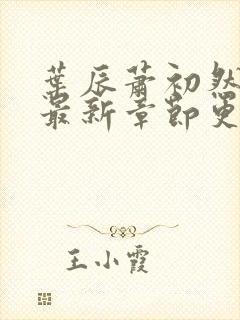 葉辰蕭初然
最新章節更
王小霞